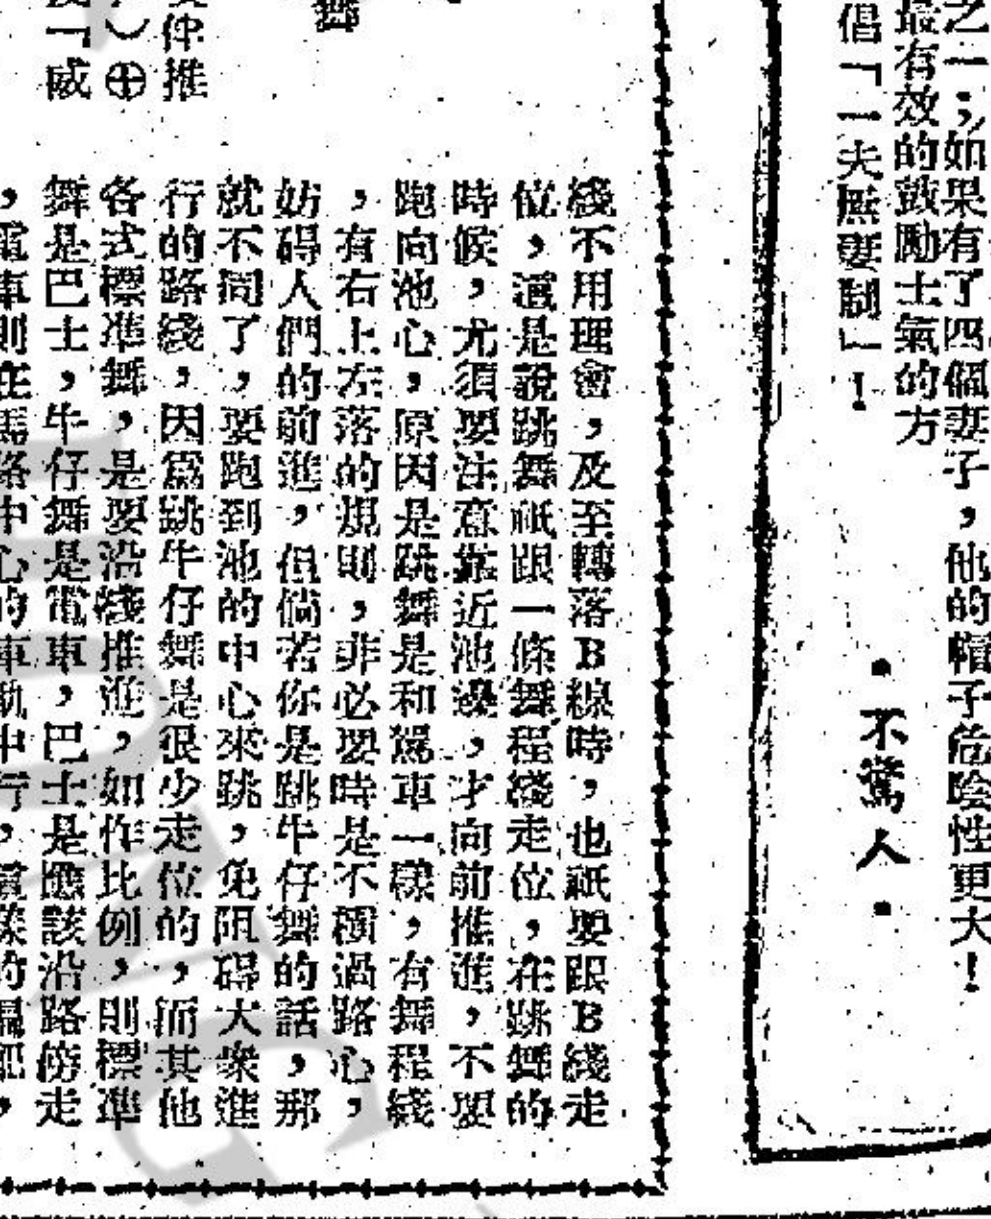 之一；如果有了四個妻子，他的帽子危險性更大！
最有效的鼓勵士氣的方
倡「一夫無妻制」！
•不驚人•
綫不用理會，及至轉落B線時，也祇要跟B綫走
位，這是說跳舞祇跟一條舞程綫走位，在跳舞的
時候，尤須要注意靠近池邊，才向前推進，不要
跑向池心，原因是跳舞是和駕車一樣，有舞程綫
，有右上左落的規則，非必要時是不橫過路心，
妨碍人們的前進，但倘若你是跳牛仔舞的話，那
就不同了，要跑到池的中心來跳，免阻碍大衆進
行的路綫，因爲跳牛仔舞是很少走位的，而其他
各式標准舞，是要沿綫推進，如作比例，則標準
舞是巴士，牛仔舞是電車，巴士是應該沿路傍走
，電車則在馬路中心的車軌中行，
舞
仲推
⊕
「威